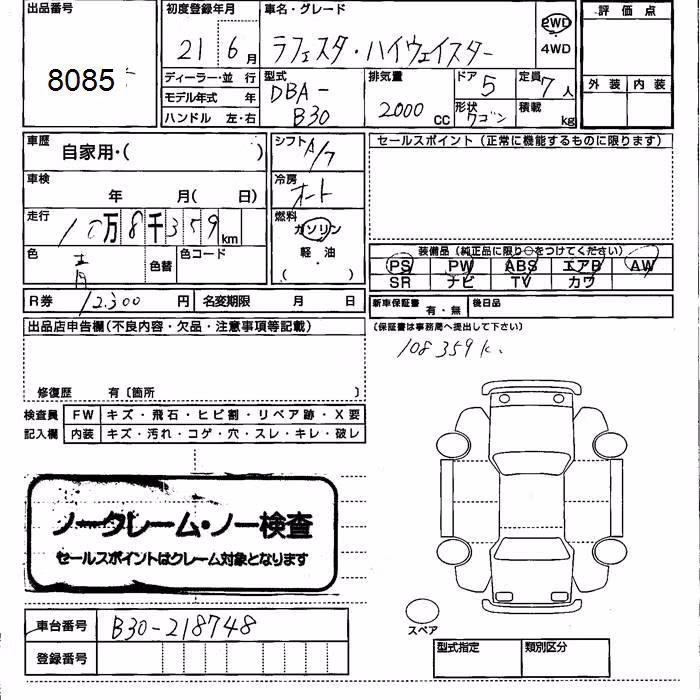 出品番号
8085
初度登録年月
21 6月
車名・グレード
ラフェスタ・ハイウェイスター
2WD
4WD
評価点
外装 内装
ディーラー・並 行
モデル年式 年
ハンドル 左・右
型式
DBA-
B30
排気量
2000 CC
ドア 5
形状 ワゴン
定員 7人
積載 kg
車歴
自家用・( )
シフト A/T
車検
年 月( 日)
冷房
オート
走行
10万8千359km
燃料
ガソリン
軽・油
( )
色
青
色替
色コード
R券 12,300 円
名変期限 月 日
セールスポイント(正常に機能するものに限ります)
装備品(純正品に限り○をつけてください)
PS PW ABS エアB AW
SR ナビ TV カワ
新車保証書 有・無
後日品
(保証書は事務局へ提出して下さい)
108359k.
出品店申告欄(不良内容・欠品・注意事項等記載)
修復歴 有〔箇所 〕
検査員 FW キズ・飛石・ヒビ割・リペア跡・X要
記入欄 内装 キズ・汚れ・コゲ・穴・スレ・キレ・破レ
ノークレーム・ノー検査
セールスポイントはクレーム対象となります
車台番号 B30-218748
登録番号
スペア
型式指定
類別区分